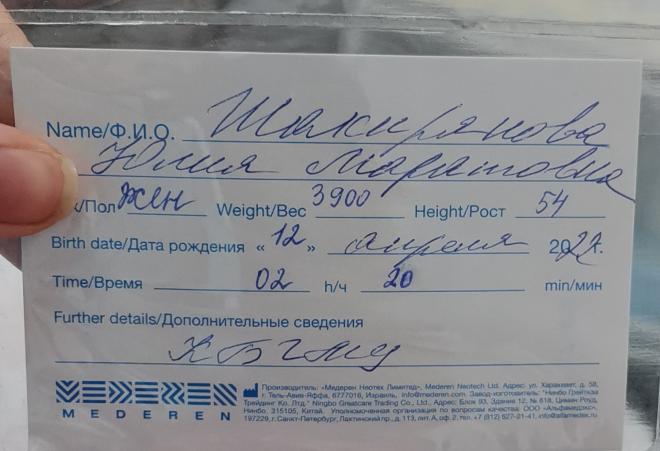 Name/Ф.И.О. Шакирянова
Юлия Маратовна
/Пол жен Weight/Вес 3900 Height/Рост 54
Birth date/Дата рождения «12» апреля 2022г.
Time/Время 02 h/ч 20 min/мин
Further details/Дополнительные сведения
КБГМУ
MEDEREN
Производитель: «Медерен Неотех Лимитед», Mederen Neotech Ltd. Адрес: ул. Харакевет, д. 58,
г. Тель-Авив-Яффа, 6777016, Израиль, info@mederen.com. Завод-изготовитель: "Нинбо Грейткэа
Трейдинг Ко. Лтд." Ningbo Greatcare Trading Co., Ltd., Адрес: Блок 93, Здание 12, № 818, Цимин Роуд,
Нинбо, 315105, Китай. Уполномоченная организация по вопросам качества: ООО «Альфамедэкс»,
197229, г. Санкт-Петербург, Лахтинский пр., д. 113, лит. А, оф. 2, тел. +7 (812) 627-21-41, info@alfamedex.ru